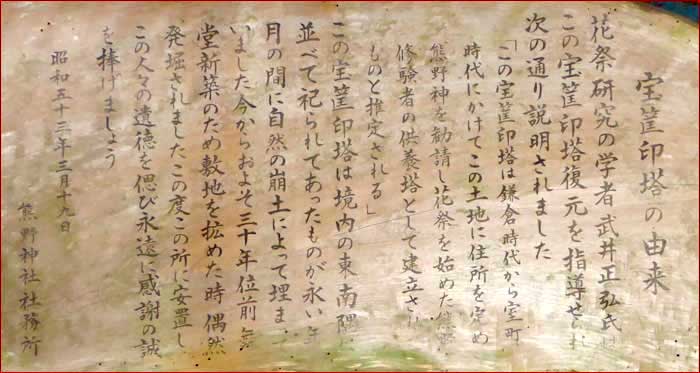 宝筐印塔の由来
花祭研究の学者武井正弘氏
この宝筐印塔復元を指導せ
次の通り説明されました
「この宝筐印塔は鎌倉時代から室町
時代にかけてこの土地に住所を定め
熊野神を勧請し花祭を始めた
修験者の供養塔として建立さ
ものと推定される」
この宝筐印塔は境内の東南隅
並べて祀られてあったものが永い年
月の間に自然の崩土によって埋ま
いました今からおよそ三十年位前
堂新築のため敷地を拡めた時偶然
発掘されましたこの度この所に安置し
この人々の遺徳を偲び永遠に感謝の誠
を捧げましょう
昭和五十三年三月十九日
熊野神社社務所